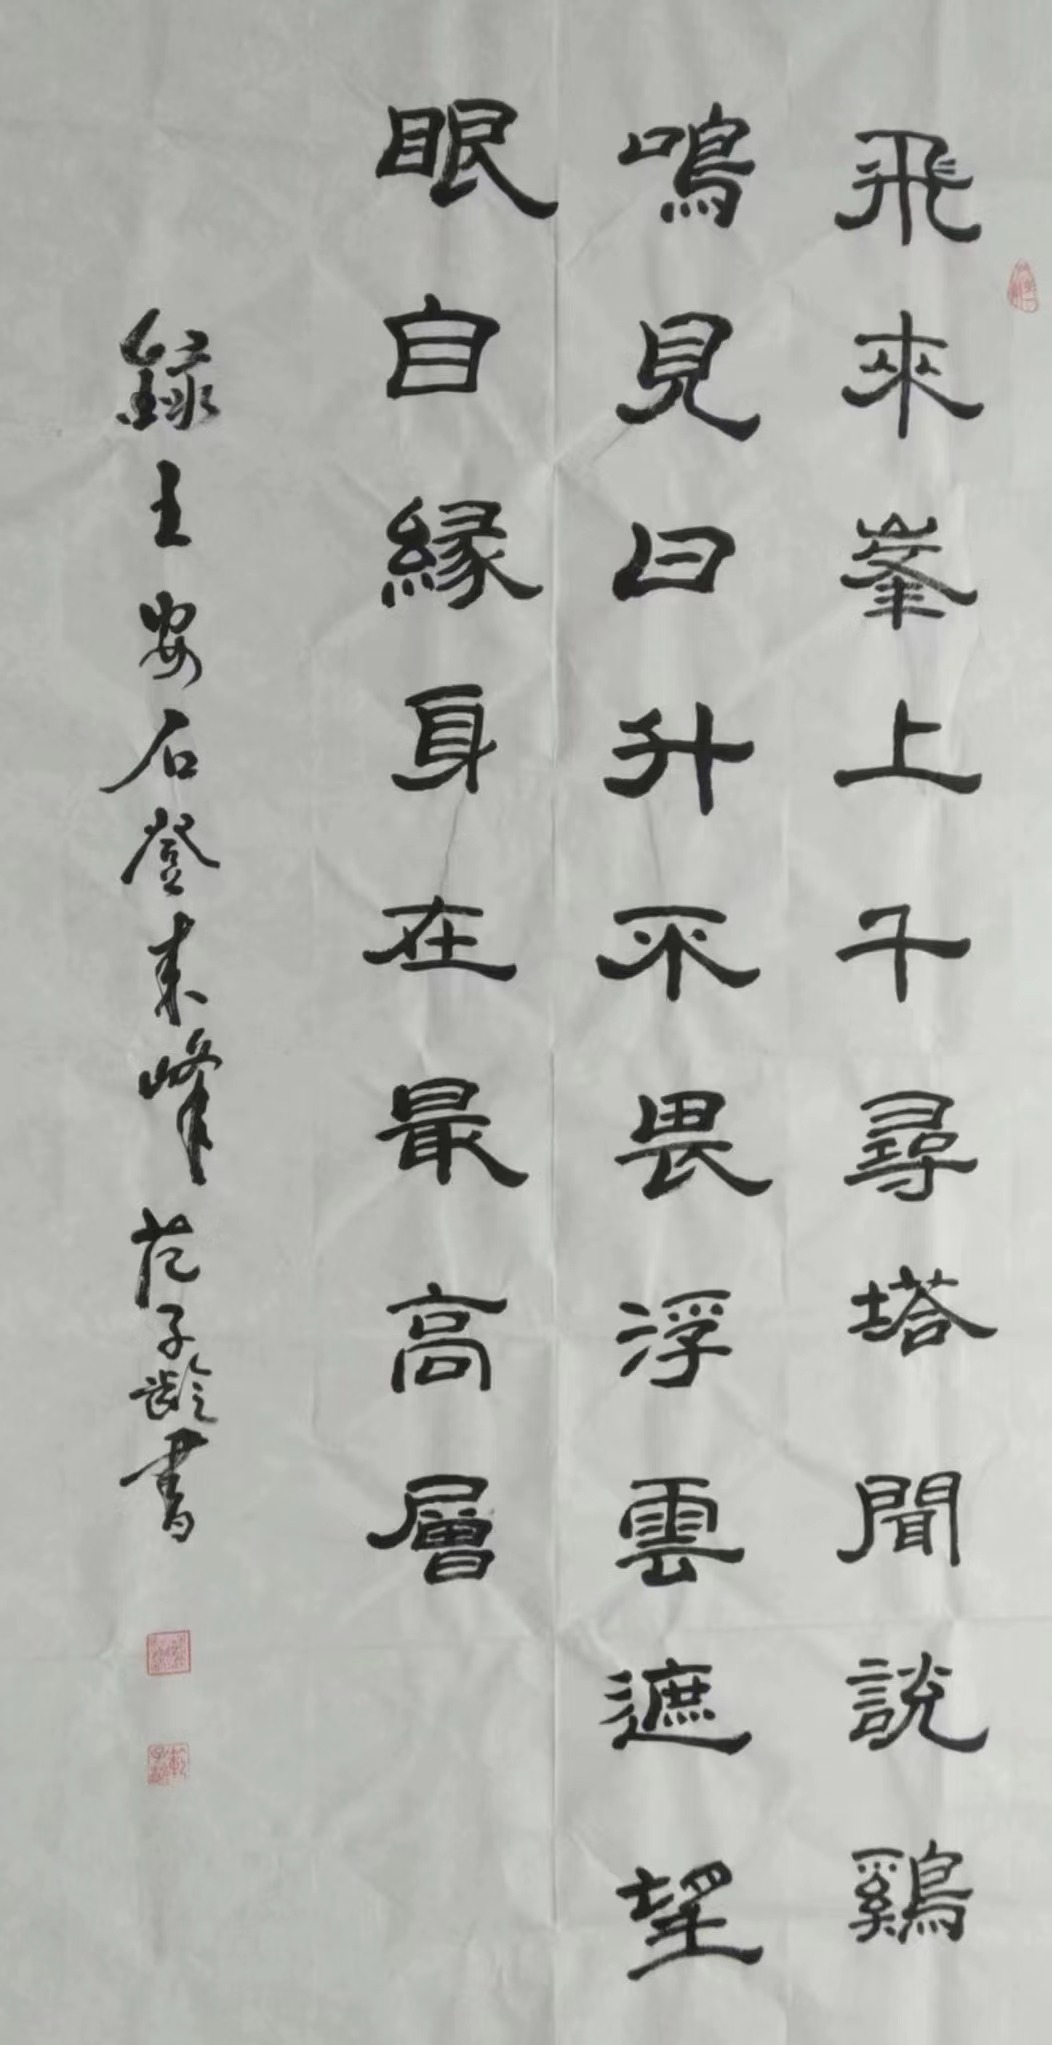 飛來峯上千尋塔聞說鷄
鳴見日升不畏浮雲遮望
眼自緣身在最高層
錄王安石登来峰范子齡書